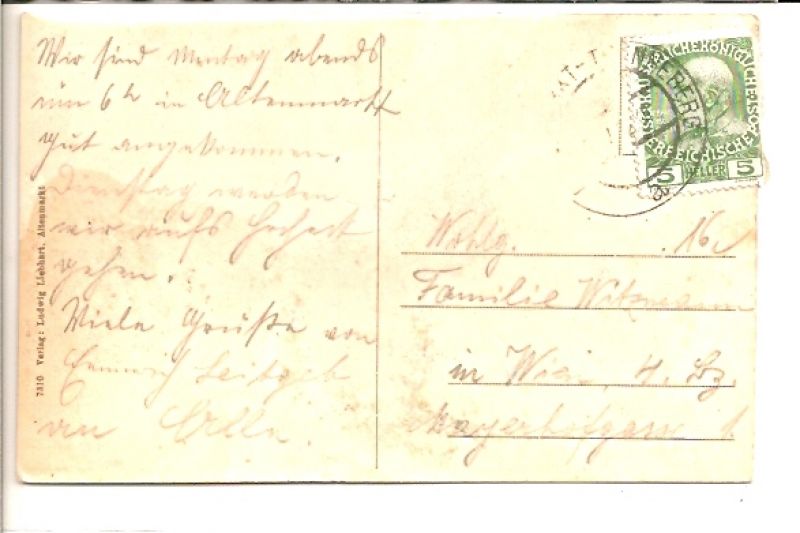 Wir sind Montag abends
um 6h in Altenmarkt
gut angekommen.
Dienstag werden
wir aufs Hocheck
gehen.
Viele Grüße von
Heinrich Leitgeb
an Alle.
7310 Verlag: Ludwig Liebhart, Altenmarkt
KAISERLICHE KÖNIGLICHE ÖSTERREICHISCHE
5 HELLER 5
Wohlg.
Familie Witzmann
in Wien, 4. Bz.
Mayerhofgasse 1.